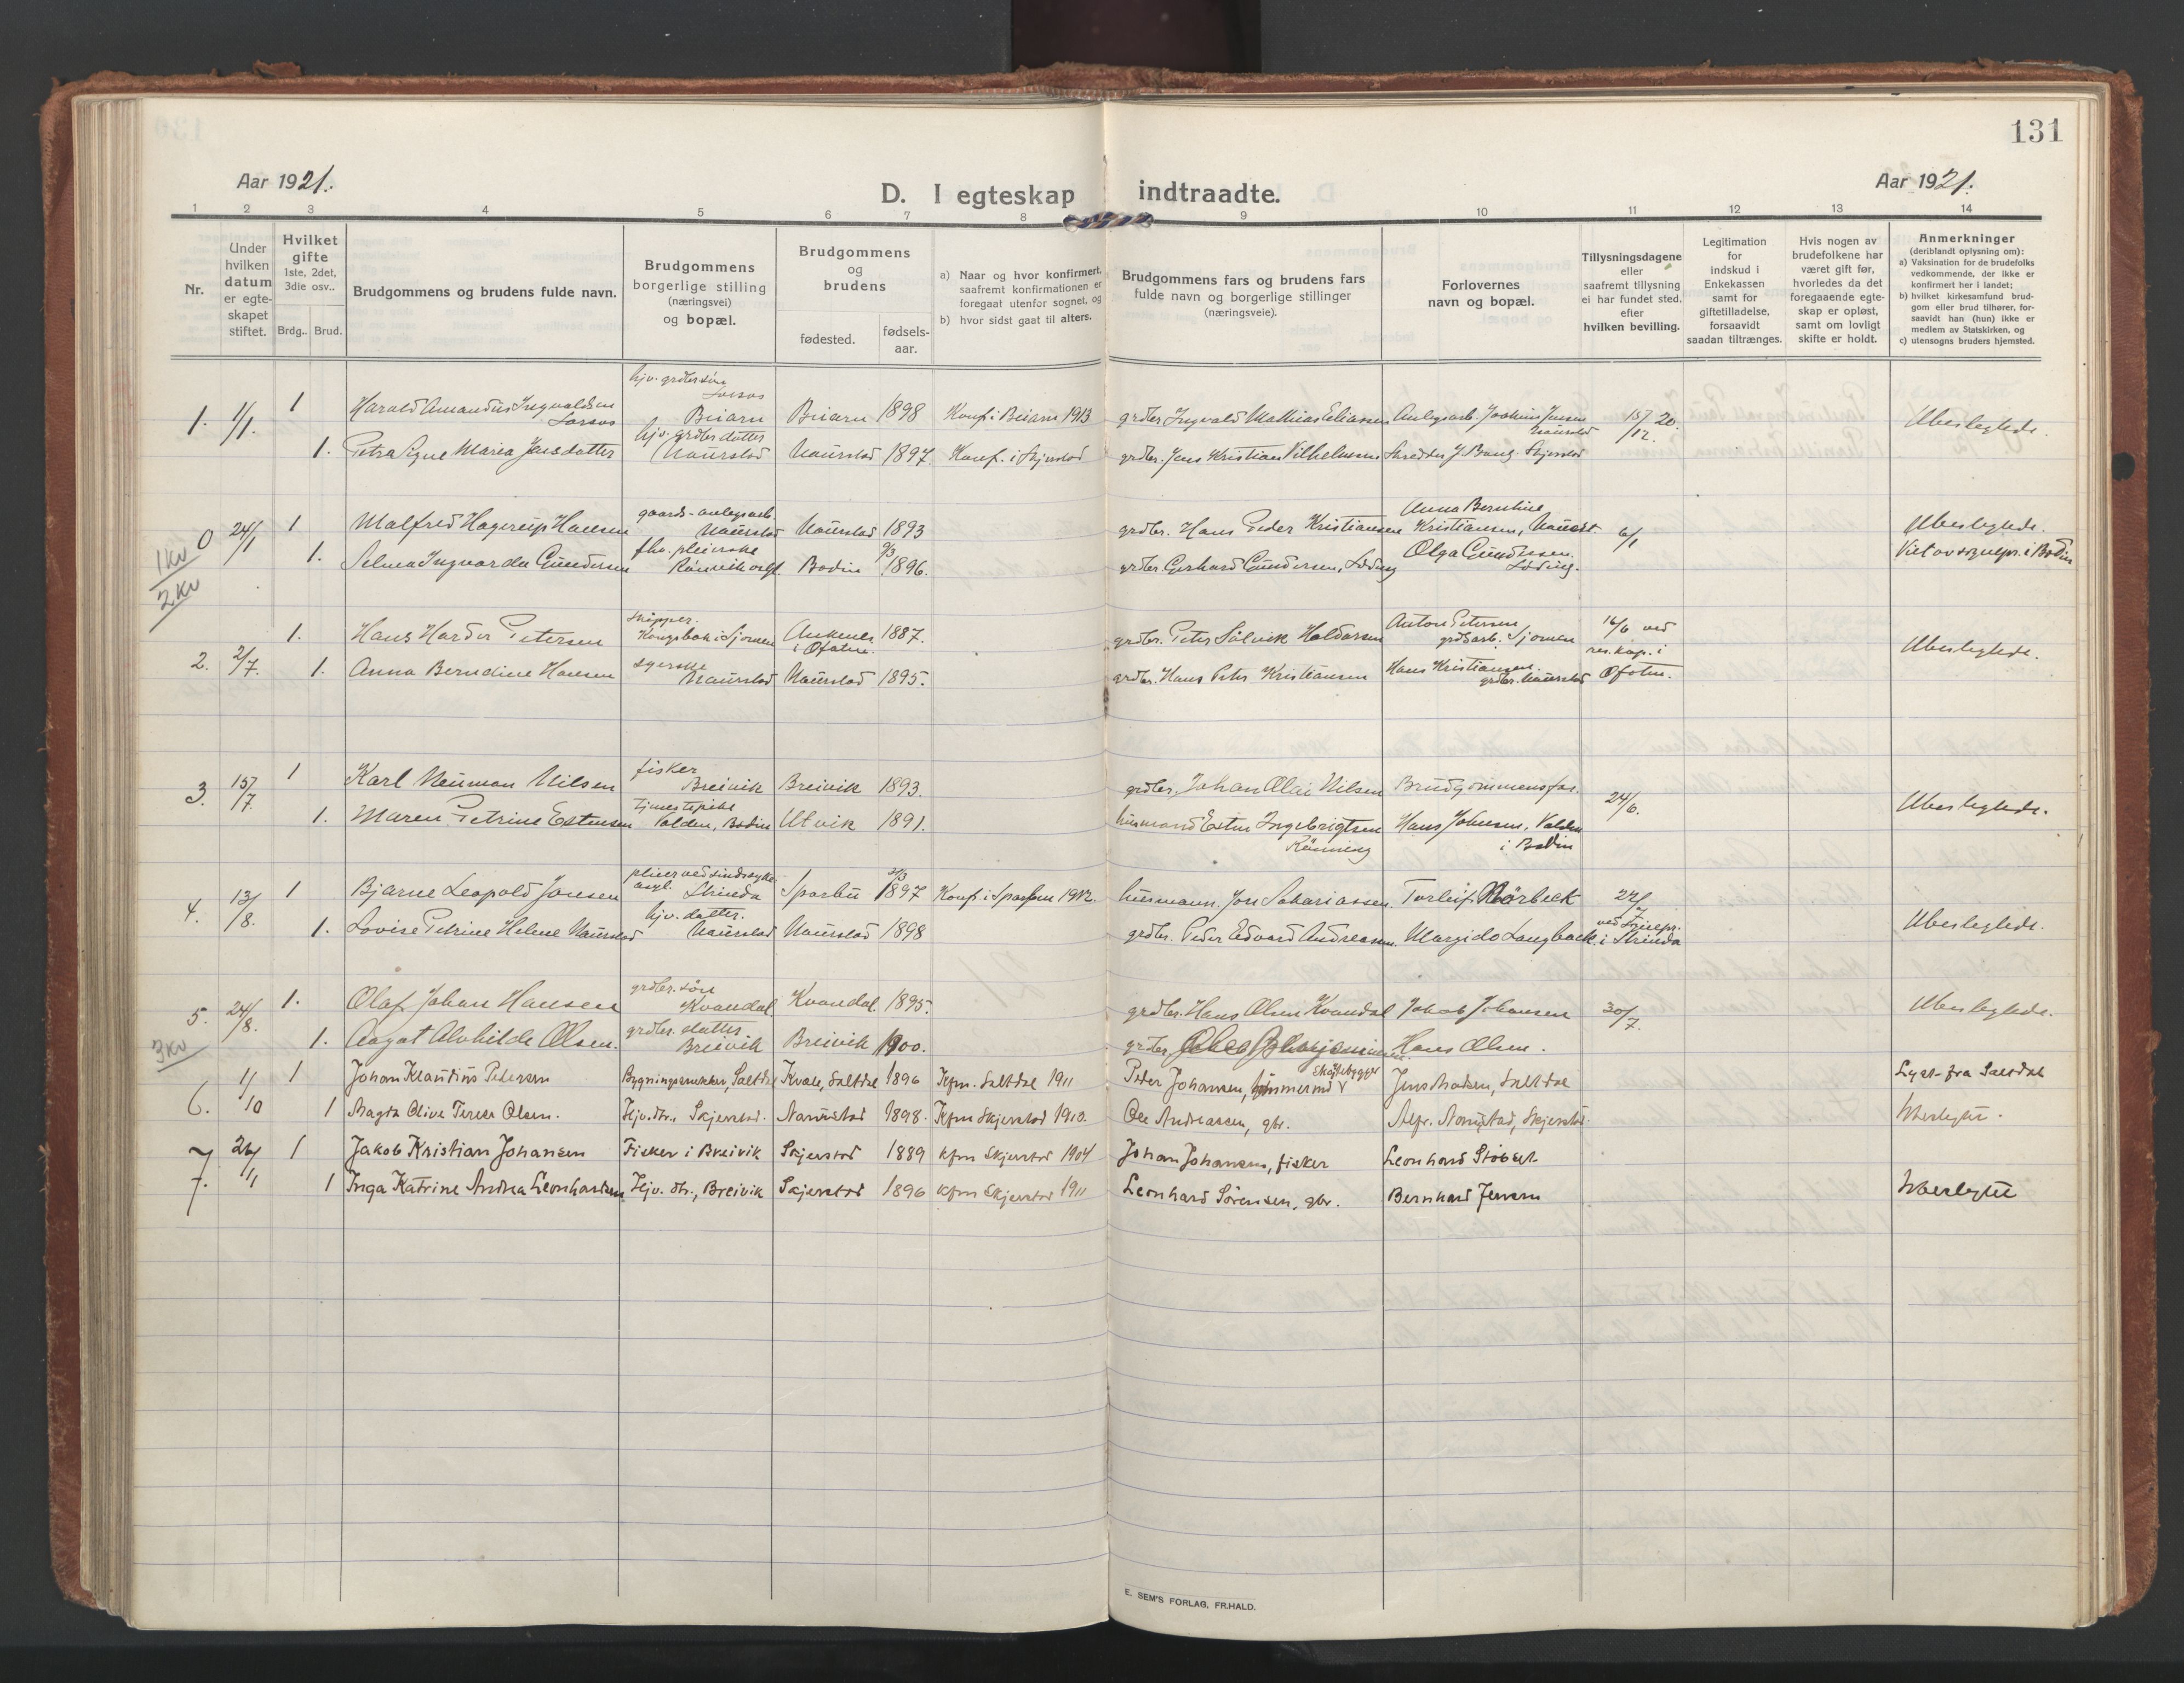 131
Aar 1921.
D. I egteskap indtraadte.
Aar 1921.
1 2 3 4 5 6 7 8 9 10 11 12 13 14
Nr.
Under hvilken datum er egteskapet stiftet.
Hvilket gifte 1ste, 2det, 3die osv..
Brdg.. Brud.
Brudgommens og brudens fulde navn.
Brudgommens borgerlige stilling (næringsvei) og bopæl.
Brudgommens og brudens
fødested.
fødsels-aar.
a) Naar og hvor konfirmert, saafremt konfirmationen er foregaat utenfor sognet, og
b) hvor sidst gaat til alters.
Brudgommens fars og brudens fars fulde navn og borgerlige stillinger (næringsveie).
Forlovernes navn og bopæl.
Tillysningsdagene eller saafremt tillysning ei har fundet sted, efter hvilken bevilling.
Legitimation for indskud i Enkekassen samt for giftetilladelse, forsaavidt saadan tiltrænges.
Hvis nogen av brudefolkene har været gift før, hvorledes da det foregaaende egteskap er opløst, samt om lovligt skifte er holdt.
Anmerkninger (deriblandt oplysning om):
a) Vaksination for de brudefolks vedkommende, der ikke er konfirmert her i landet;
b) hvilket kirkesamfund brudgom eller brud tilhører, forsaavidt han (hun) ikke er medlem av Statskirken, og
c) utensogns bruders hjemsted.
1. 1/1. 1 Harald Amandus Ingvaldsen Beiarn Beiarn 1898 Konf. i Beiarn 1913 grdbr. Ingvald Mathias Eliassen Joakim Jensen 15/12. 20. Ubeslegtede.
1. Petra Signe Maria Jensdatter hjv. grdbr datter Naurstad Naurstad 1897 Konf. i Skjerstad grdbr. Jens Kristian Vilhelmsen Skrædder J. Bang. Skjerstad
1 kv
2 kv
0 24/1 1 Malfred Hagerup Hansen gaards-anlegsarb. Naurstad Naurstad 1893 grdbr. Hans Peder Kristiansen Anna Bernhine Kristiansen, Naurst. 6/1 Ubeslegtede.
1. Selma Ingvarda Gundersen fhv. pleierske Rønvik asyl. Bodin 9/3 1896. grdbr. Gerhard Gundersen, Løding Olga Gundersen. Løding. Viet av sognepr. i Bodin
2. 2/7. 1. Hans Harder Petersen skipper. Kongsbak i Sjomen Ankenes i Ofoten. 1887. grdbr. Peter Sølvik Haldorsen Anton Petersen grdsarb. Sjomen 16/6 ved res. kap. i Ofoten. Ubeslegtede.
1. Anna Berndine Hansen syerske Naurstad Naurstad 1895. grdbr. Hans Peter Kristiansen Hans Kristiansen. grdbr. Naurstad
3. 15/7. 1 Karl Neuman Nilsen fisker Breivik Breivik 1893. grdbr. Johan Olai Nilsen Brudgommens far. 24/6. Ubeslegtede.
1. Maren Petrine Estensen Valden, Bodin Utvik 1891. husmand Esten Ingebrigtsen Rønning Hans Johnsen, Valden i Bodin
4. 13/8. 1 Bjarne Leopold Jonsen pleier ved sindssyke asyl. Strinda Sparbu 2/3 1897 Konf. i Sparbu 1912. husmann. Jon Sakariassen. Torleif Mörbeck ved sognepr. i Strinda Ubeslegtede.
1. Lovise Petrine Helene Naurstad hjv. datter. Naurstad Naurstad 1898 grdbr. Peder Edvard Andreasen. Margido Langback
5. 24/8. 1. Olaf Johan Hansen grdbr. søn Kvandal Kvandal. 1895. grdbr. Hans Olsen Kvandal Jakob Johansen 30/7. Ubeslegtede.
3 kv
1. Aagot Alvhilde Olsen. grdbr. datter. Breivik Breivik 1900. grdbr. Hans Olsen.
6. 1/10 1 Johan Klautius Pedersen Bygningssnekker, Saltdal Kvale, Saltdal 1896 Kfm. Saltdal 1911 Peder Johansen, Skøitebygger Jens Madsen, Saltdal Lyst fra Saltdal
1 Magda Olive Terese Olsen. Hjv. dtr., Skjerstad. Naurstad 1898. Kfm Skjerstad 1913. Ole Andreassen, gbr. Alfr. Naurstad, Skjerstad. Ubeslegtet.
7. 26/11 1 Jakob Kristian Johansen Fisker i Breivik Skjerstad 1889 kfm Skjerstad 1904 Johan Johansen, fisker Leonhard Støbset
7. 1 Inga Katrine Andrea Leonhardsen Hjv. dtr., Breivik Skjerstad 1896 kfm Skjerstad 1911 Leonhard Sörensen, gbr. Bernhard Jensen Ubeslegtet
E. SEM'S FORLAG, FR.HALD.